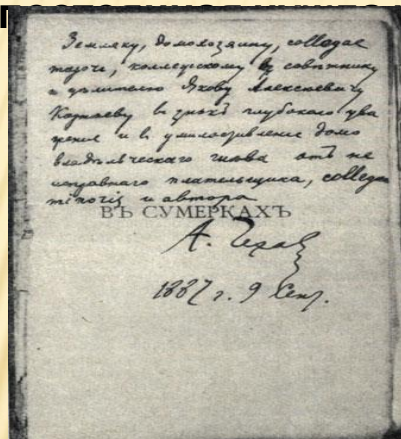 Земляку, домохозяину, collegae
majori, коллежскому совѣтнику
и цѣлителю Якову Алексѣевичу
Корнѣеву въ знакъ глубокаго ува
женія и въ умилостивленіе домо
владѣльческаго гнѣва отъ не
исправнаго плательщика, collegae
minoris и автора
ВЪ СУМЕРКАХЪ
А. Чехов
1887 г. 9 Сент.